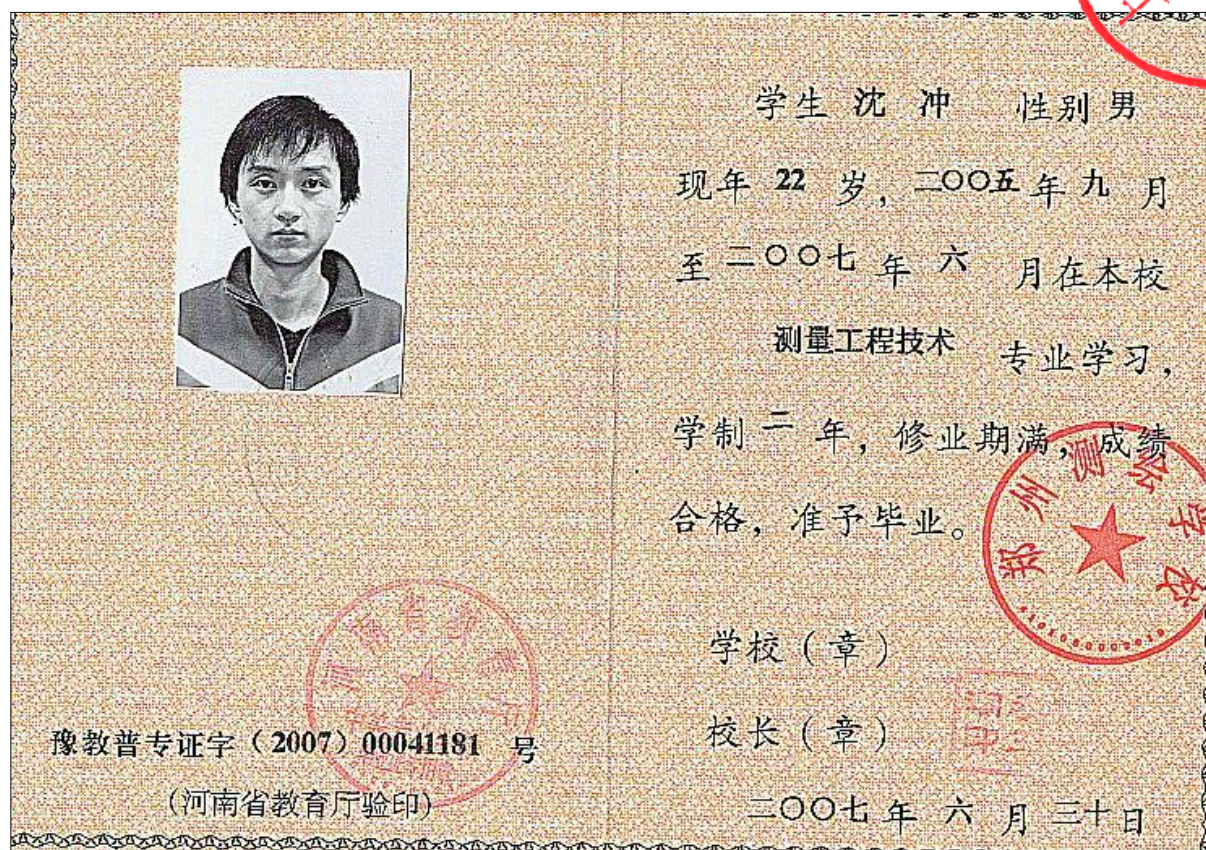 学生 沈 冲 性别 男
现年 22 岁，二〇〇五 年 九 月
至 二〇〇七 年 六 月在本校
测量工程技术 专业学习，
学制 二 年，修业期满，成绩
合格，准予毕业。
郑州测绘学校
4101050000010
学校（章）
校长（章）
二〇〇七 年 六 月 三十 日
河南省教育厅
豫教普专证字（2007）00041181 号
（河南省教育厅验印）